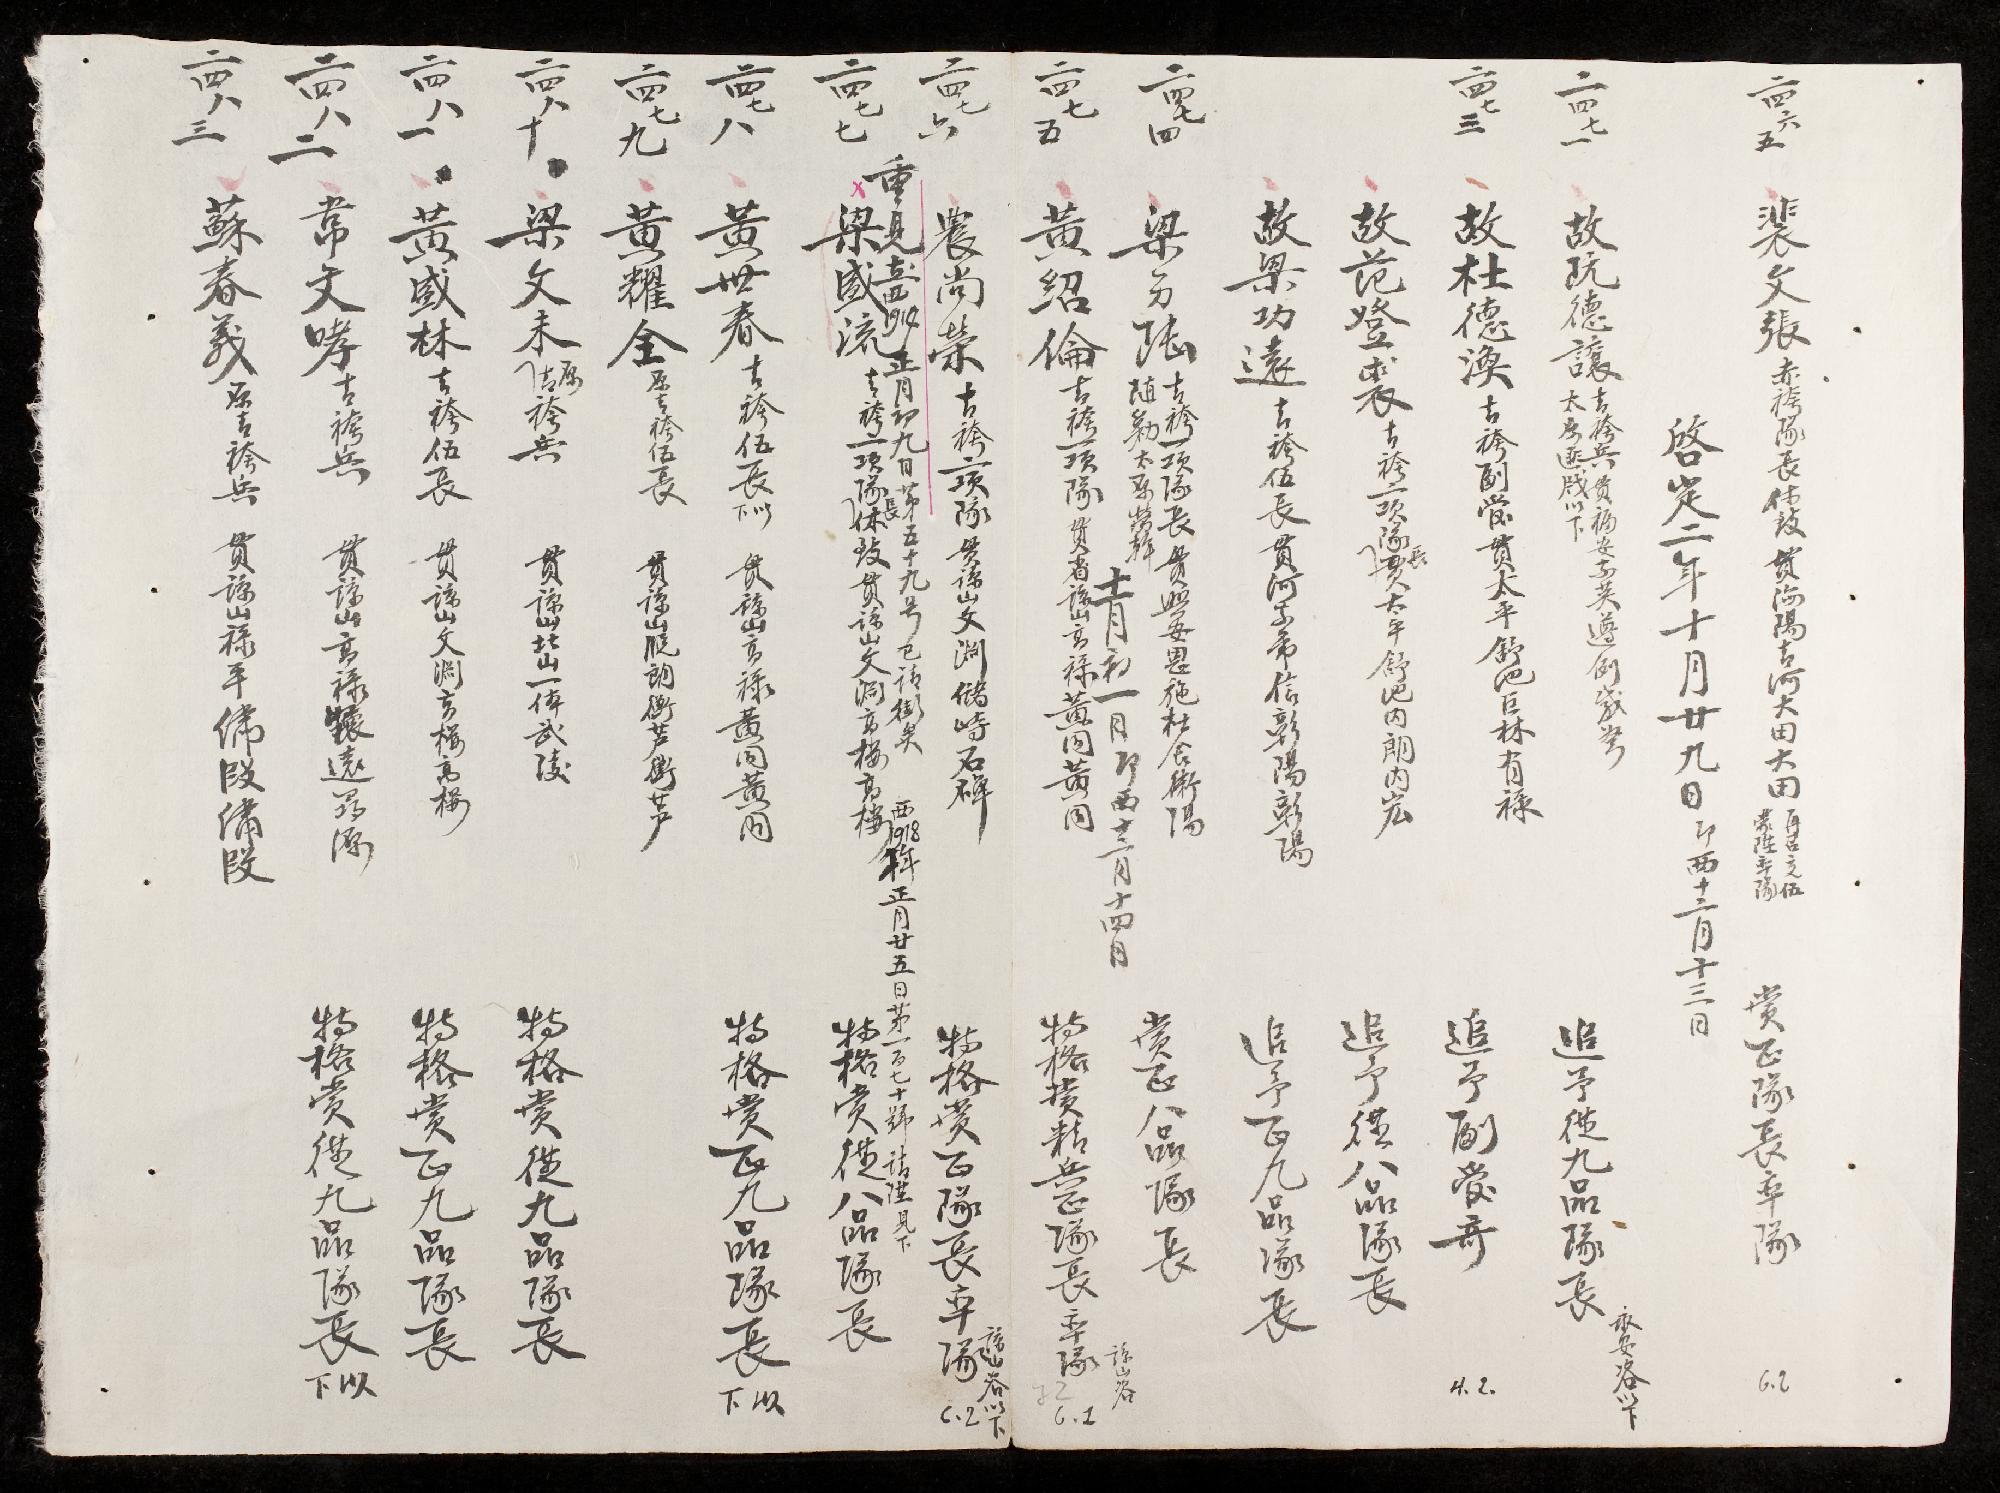 二四六五
裴文張 赤袴隊長休致 貫海陽吉河大田大田
賞正隊長率隊
6.2
啓定二年十月廿九日 即西十二月十三日
二四七一
故阮德讓 吉袴兵貫福安
太原匪戕以下
追予從九品隊長
二四七三
故杜德渙 吉袴副管 貫太平舒池巨林有祿
追予副管奇
4.2.
故范登裘 吉袴一項隊長 貫太平舒池內朗內
追予從八品隊長
故梁功遠 吉袴伍長 貫河東常信彰陽彰陽
追予正九品隊長
二四七四
梁 陸 吉袴一項隊長 貫興安恩施杜舍衡陽
隨勦太原勞辦
賞正八品隊長
十一月初一日 即西十二月十四日
諒山咨
二四七五
黃紹倫 吉袴一項隊 貫省諒山高祿黃同黃同
特格賞精兵正隊長率隊
6.2
二四七六
農尚榮 吉袴一項隊 貫諒山文淵儲峙石碑
特格賞正隊長率隊
諒山咨以下
6.2
重見 西1919正月初九日第五十九号已請銜矣
西1918年正月廿五日第一百七十號請陞見下
二四七七
梁盛流 吉袴一項隊長休致 貫諒山文淵高樓高樓
特格賞從八品隊長
二四七八
黃世春 吉袴伍長以下 貫諒山高祿黃同黃同
特格賞正九品隊長以下
二四七九
黃耀全 原吉袴伍長 貫諒山脫朗衛芦衛芦
二四八十
梁文未 原吉袴兵 貫諒山 武陵
特格賞從九品隊長
二四八一
黃盛林 吉袴伍長 貫諒山文淵高樓高樓
特格賞正九品隊長
二四八二
常文哮 吉袴兵 貫諒山高祿 遠尋源
特格賞從九品隊長以下
二四八三
蘇春義 原吉袴兵 貫諒山祿平儒段儒段